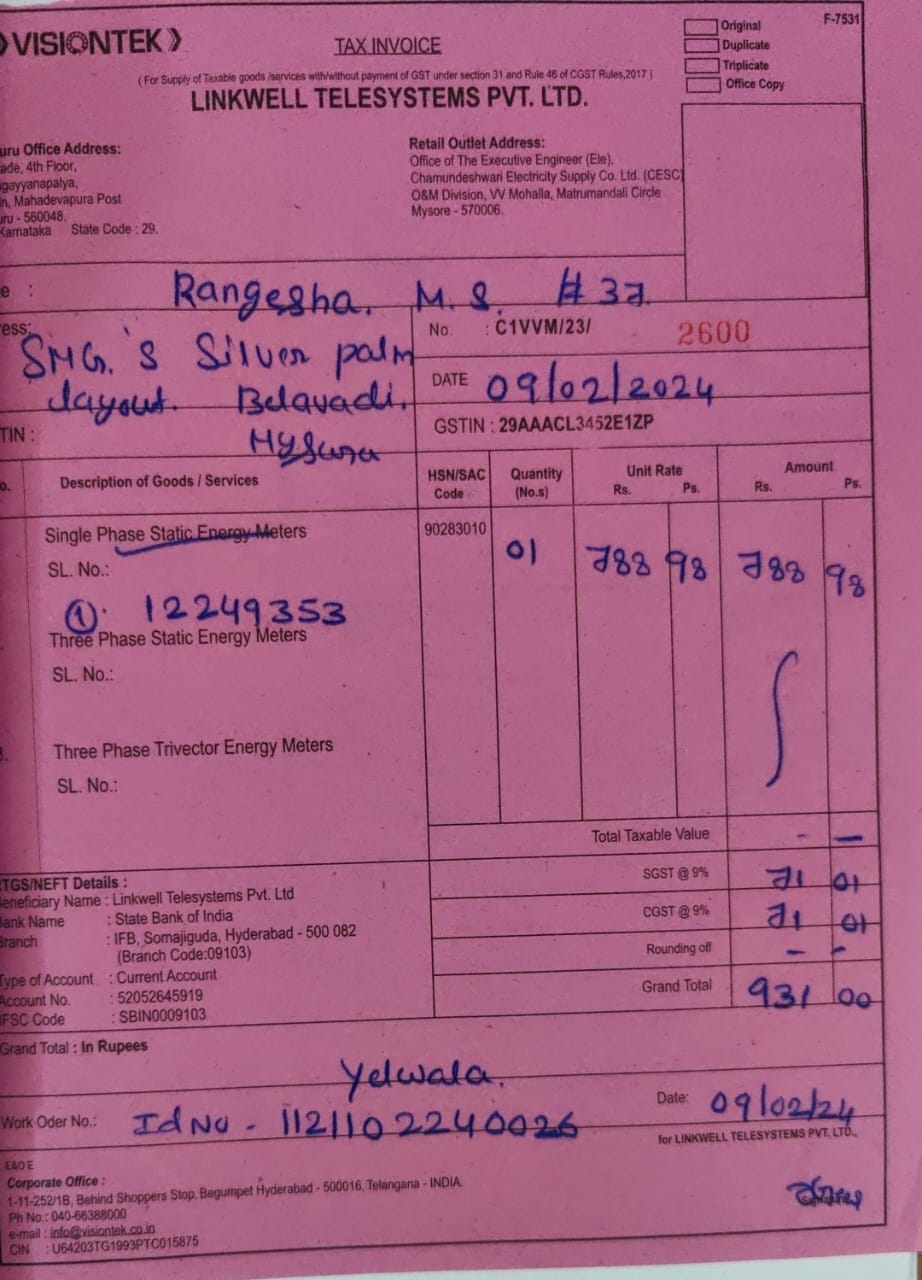 VISIONTEK
TAX INVOICE
Original
F-7531
Duplicate
Triplicate
Office Copy
( For Supply of Taxable goods /services with/without payment of GST under section 31 and Rule 46 of CGST Rules,2017 )
LINKWELL TELESYSTEMS PVT. LTD.
uru Office Address:
ade, 4th Floor,
gayyanapalya,
in, Mahadevapura Post
uru - 560048.
Karnataka State Code : 29.
Retail Outlet Address:
Office of The Executive Engineer (Ele),
Chamundeshwari Electricity Supply Co. Ltd. (CESC)
O&M Division, VV Mohalla, Matrumandali Circle
Mysore - 570006.
e : Rangesha. M. S. # 37.
ess: SMG.'s Silver palm
layout. Belavadi.
Mysuru
TIN :
No. : C1VVM/23/ 2600
DATE 09/02/2024
GSTIN : 29AAACL3452E1ZP
o. Description of Goods / Services HSN/SAC Code Quantity (No.s) Unit Rate Rs. Ps. Amount Rs. Ps.
Single Phase Static Energy Meters 90283010 01 788 98 788 98
SL. No.:
①. 12249353
Three Phase Static Energy Meters
SL. No.:
3. Three Phase Trivector Energy Meters
SL. No.:
Total Taxable Value - -
SGST @ 9% 71 01
CGST @ 9% 71 01
Rounding off - -
Grand Total 931 00
TGS/NEFT Details :
eneficiary Name : Linkwell Telesystems Pvt. Ltd
Bank Name : State Bank of India
Branch : IFB, Somajiguda, Hyderabad - 500 082
(Branch Code:09103)
Type of Account : Current Account
Account No. : 52052645919
IFSC Code : SBIN0009103
Grand Total : In Rupees
Yelwala.
Work Oder No.: Id No - 1121102240026
Date: 09/02/24
for LINKWELL TELESYSTEMS PVT. LTD.,
E&O E
Corporate Office :
1-11-252/1B, Behind Shoppers Stop, Begumpet Hyderabad - 500016, Telangana - INDIA.
Ph No.: 040-66388000
e-mail : info@visiontek.co.in
CIN : U64203TG1993PTC015875